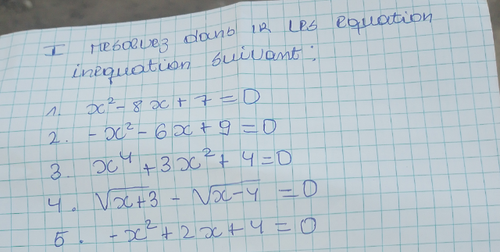 I resolvez dans IR les equation
inequation suivant :
1. x² - 8x + 7 = 0
2. -x² - 6x + 9 = 0
3. x⁴ + 3x² + 4 = 0
4. √x+3 - √x-4 = 0
5. -x² + 2x + 4 = 0